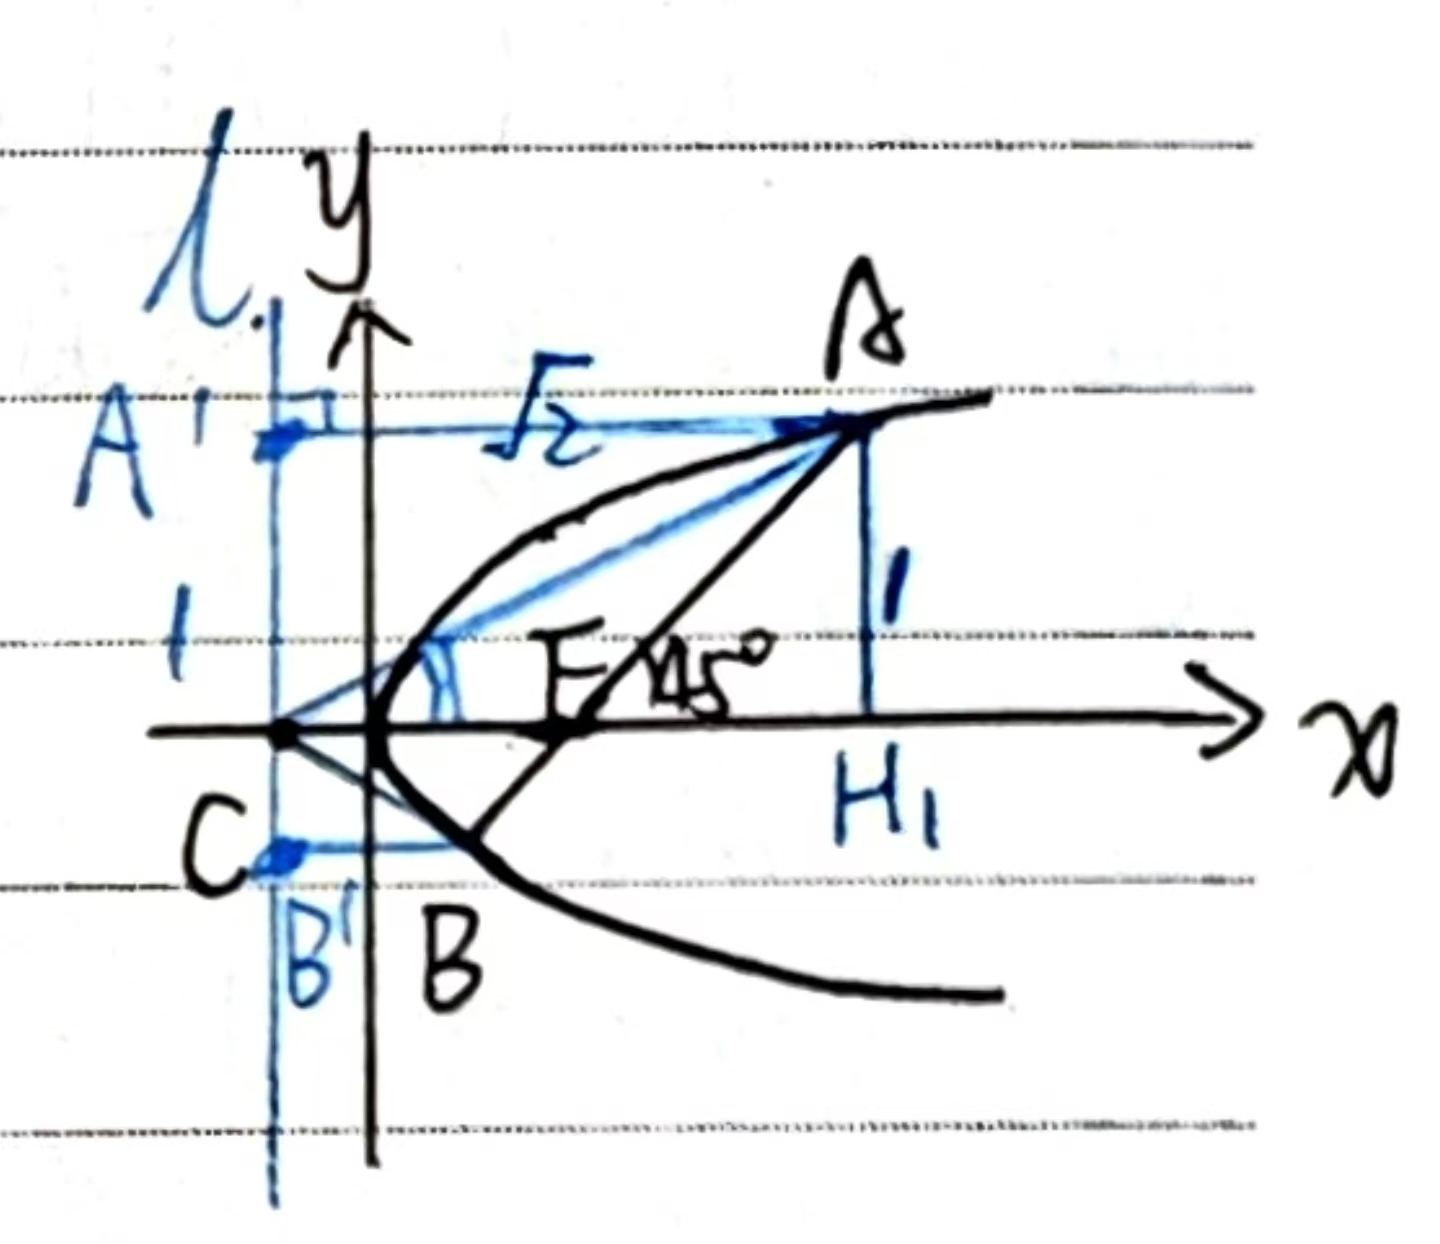 l
y
A
A'
√2
1
1
F
45°
x
C
H₁
B'
B